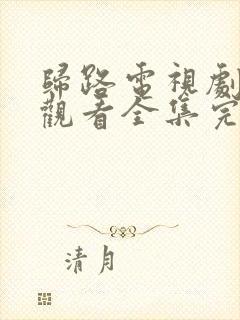 歸路電視劇
觀看全集完
清月